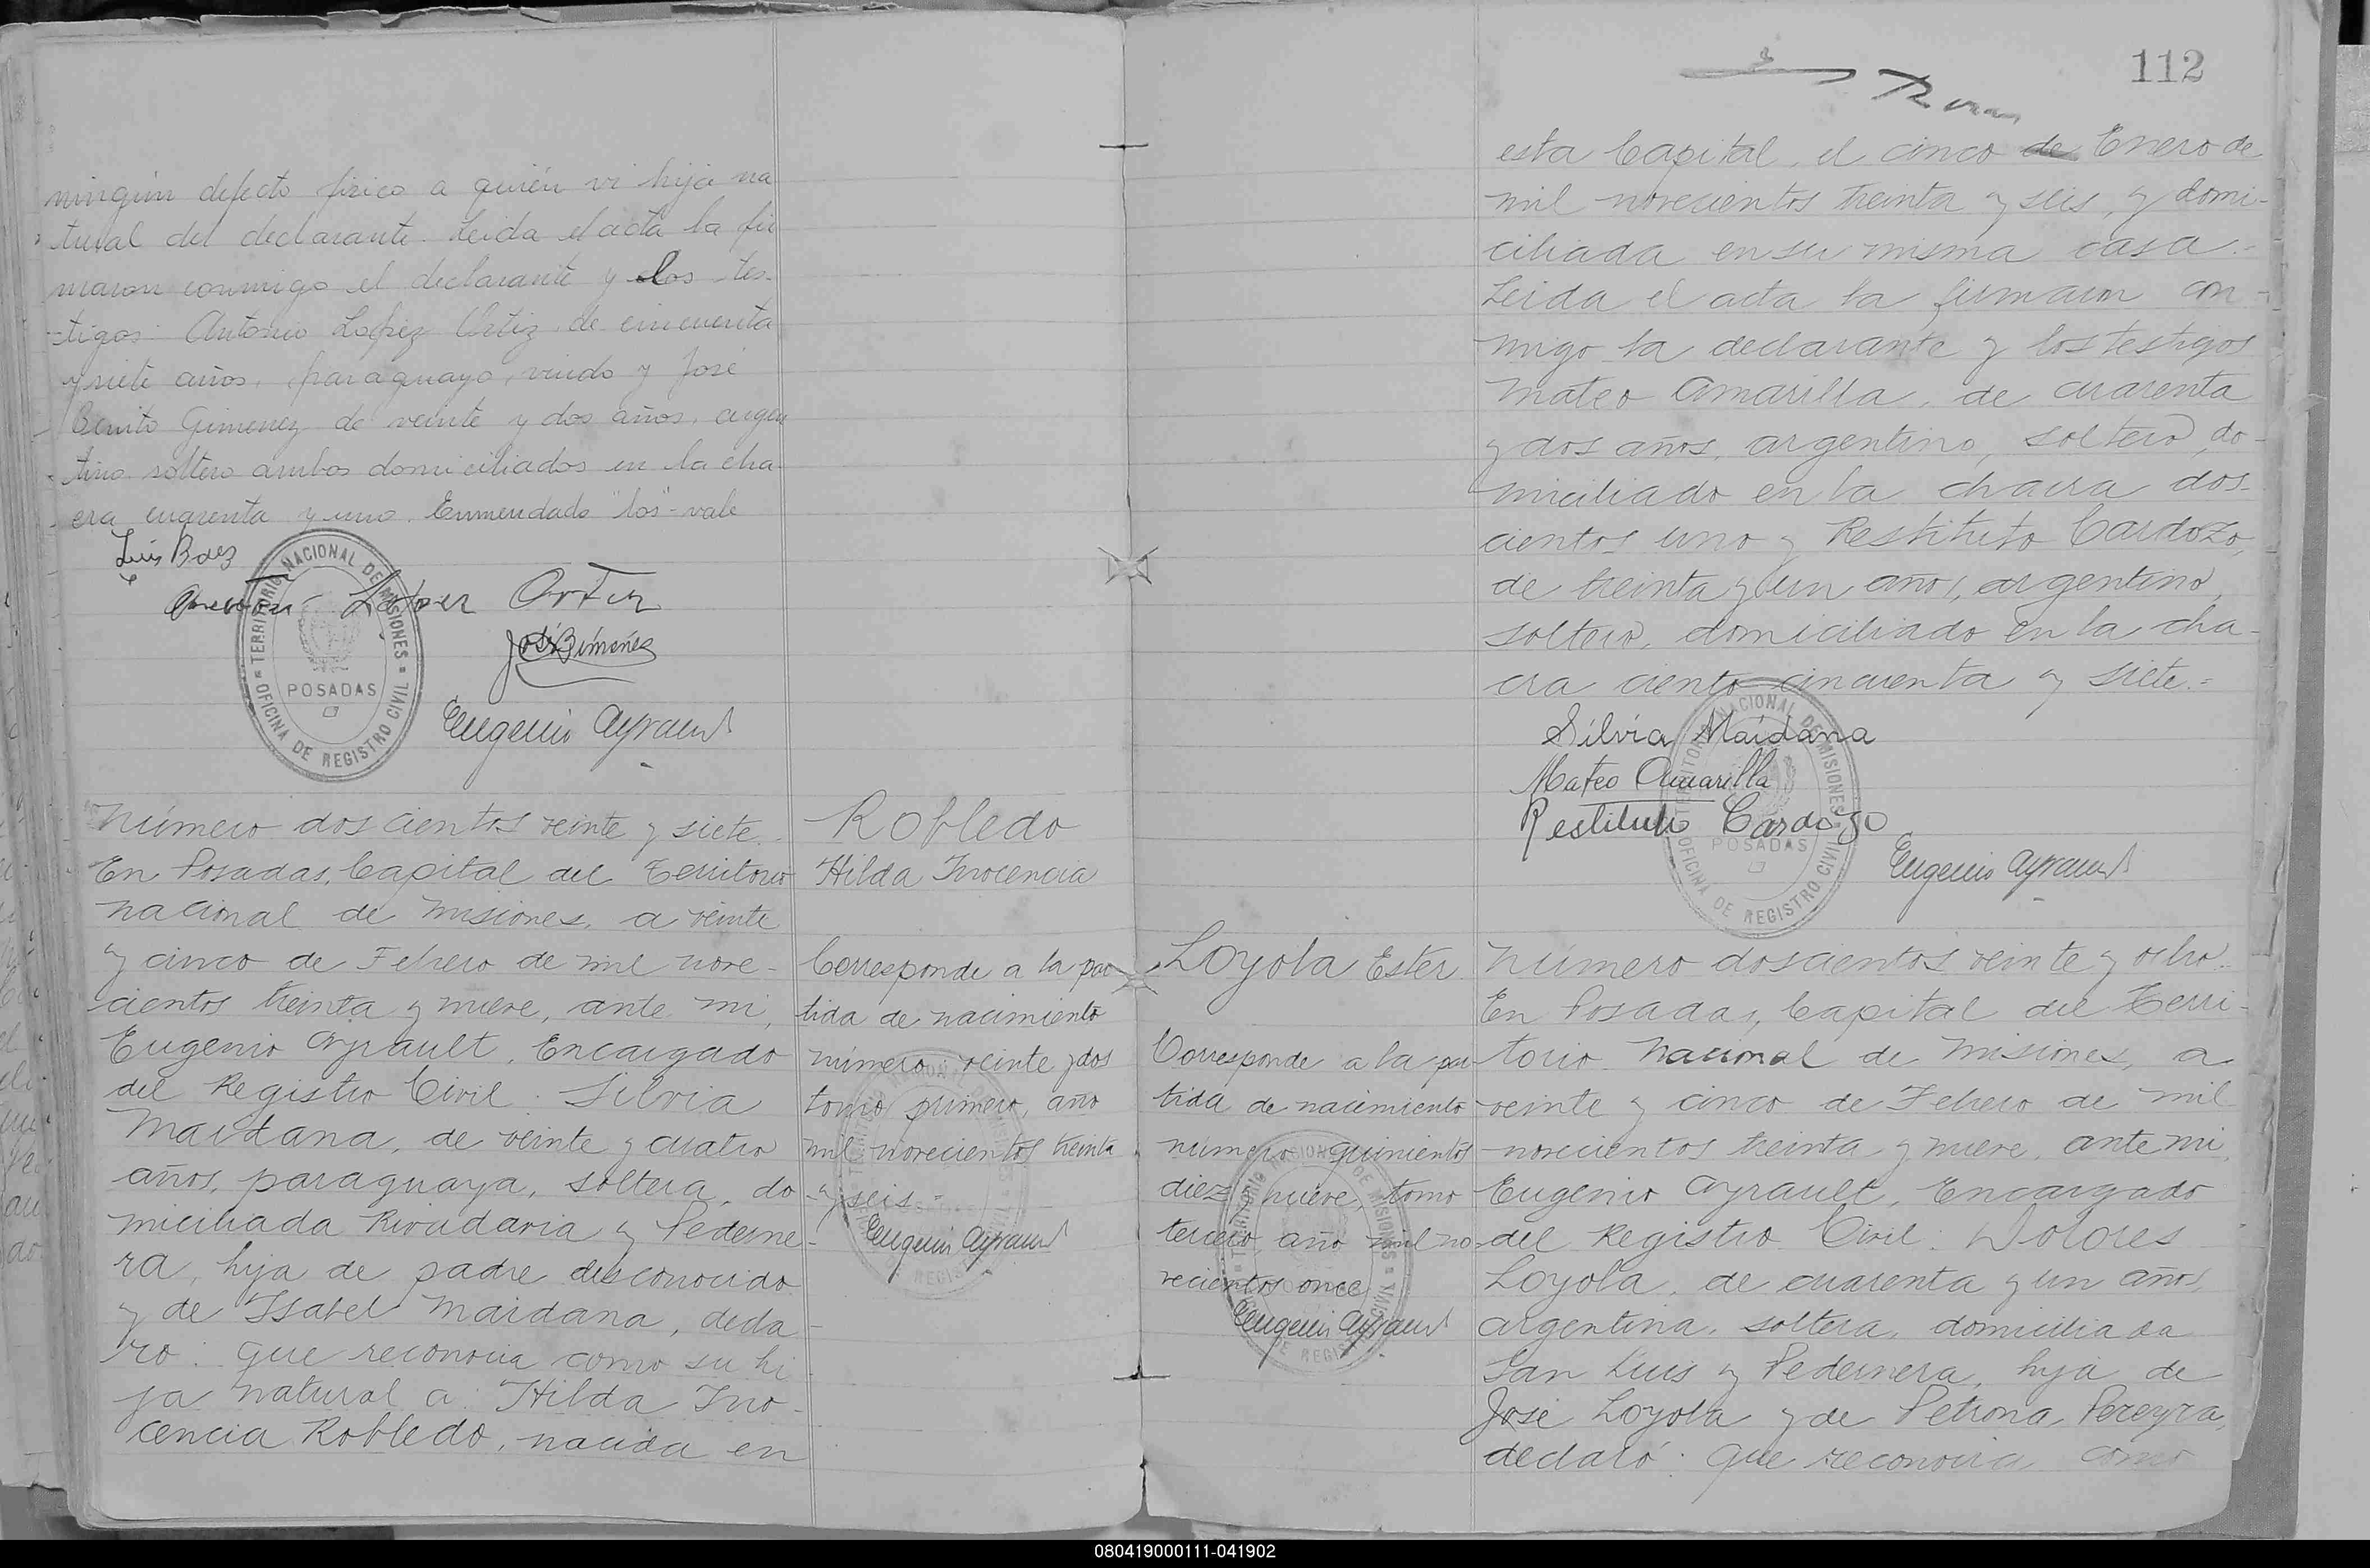 ningún defecto fisico a quién vi hija na
tural del declarante. Leida el acta la fir
maron conmigo el declarante y los tes-
tigos: Antonio Lopez Ortiz, de cincuenta
y siete años, paraguayo, viudo y José
Benito Gimenez de veinte y dos años, argen
tino soltero ambos domiciliados en la cha-
cra cuarenta y uno. Enmendado "los"-vale
Luis Baez
Lopez Ortiz
José B Gimenez
Eugenio Ayrault
TERRITORIO NACIONAL DE MISIONES
POSADAS
OFICINA DE REGISTRO CIVIL
Número doscientos veinte y siete.
En Posadas, Capital del Territorio
nacional de Misiones, a veinte
y cinco de Febrero de mil nove-
cientos treinta y nueve, ante mi,
Eugenio Ayrault, Encargado
del Registro Civil: Silvia
Maidana, de veinte y cuatro
años, paraguaya, soltera, do
miciliada Rivadavia y Pederne-
ra, hija de padre desconocido
y de Isabel Maidana, decla-
ro: que reconocia como su hi
ja natural a: Hilda Ino-
cencia Robledo, nacida en
Robledo
Hilda Inocencia
Corresponde a la par
tida de nacimiento
número veinte y dos
tomo primero, año
mil novecientos treinta
y seis.-
Eugenio Ayrault
112
esta Capital, el cinco de Enero de
mil novecientos treinta y seis, y domi-
ciliada en su misma casa.-
Leida el acta la firmaron con-
migo la declarante y los testigos
Mateo Amarilla, de cuarenta
y dos años, argentino, soltero, do-
miciliado en la chacra dos-
cientos uno y Restituto Cardozo,
de treinta y un años, argentino,
soltero, domiciliado en la cha-
cra ciento cincuenta y siete.=
Silvia Maidana
Mateo Amarilla
Restituto Cardozo
Eugenio Ayrault
TERRITORIO NACIONAL DE MISIONES
POSADAS
OFICINA DE REGISTRO CIVIL
Loyola Ester
Corresponde a la par
tida de nacimiento
número quinientos
diez nueve, tomo
tercero, año mil no
vecientos once
Eugenio Ayrault
Número doscientos veinte y ocho.
En Posadas, Capital del Terri-
torio Nacional de Misiones, a
veinte y cinco de Febrero de mil
novecientos treinta y nueve, ante mi,
Eugenio Ayrault, Encargado
del Registro Civil. Dolores
Loyola, de cuarenta y un años,
argentina, soltera, domiciliada
San Luis y Pedernera, hija de
José Loyola y de Petrona Pereyra,
declaró: que reconocia como
080419000111-041902